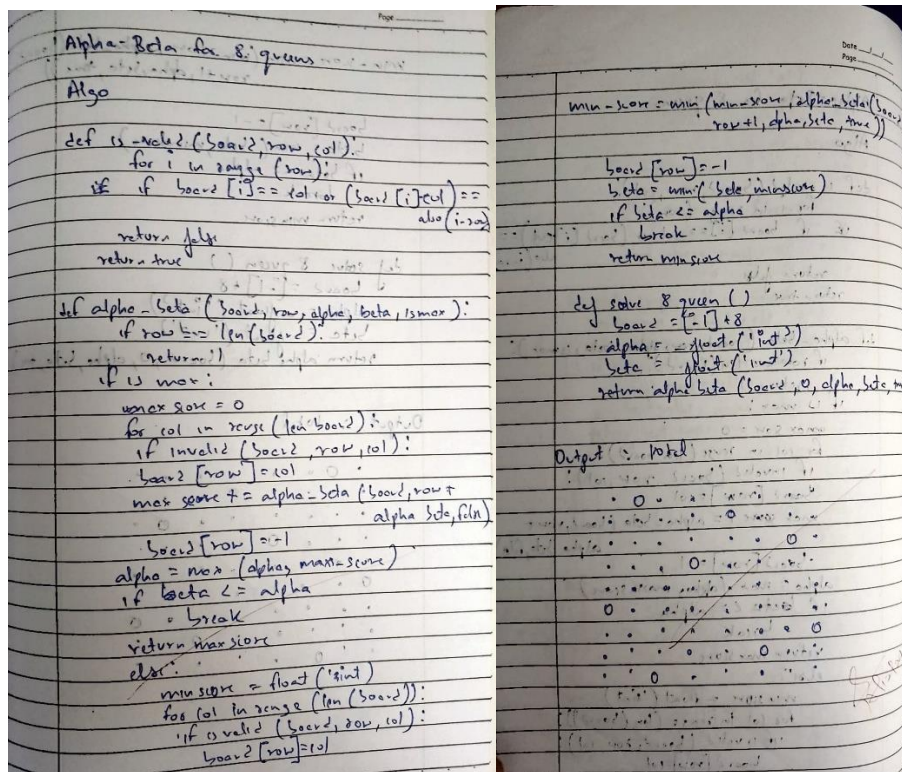 Page
Alpha-Beta for 8 queens
Algo
def is-valid (board, row, col).
for i in range (row):
if if board [i] == col or (board [i]-col) ==
abs (i-row)
return false
return true
def alpha-beta (board, row, alpha, beta, ismax):
if row == len(board):
return 1
if is max:
max score = 0
for col in range (len board):
if isvalid (board, row, col):
board [row] = col
max score += alpha-beta (board, row+
alpha beta, faln)
board [row] = -1
alpha = max (alpha, maxi-score)
if beta <= alpha
break
return maxscore
else:
min score = float ('int)
for col in range (len (board)):
if isvalid (board, row, col):
board [row] = col
Date
Page
min-score = min (min-score, alpha-beta (board
row+1, alpha, beta, true))
board [row] = -1
beta = min (beta, minscore)
if beta <= alpha
break
return minscore
def solve 8 queen ()
board = [-1] + 8
alpha = -float ('int')
beta = float ('int')
return alpha beta (board, 0, alpha, beta,
Output :
. O . . . . . .
. . . . . O . .
. . . . . . . O
. . . O . . . .
O . . . . . . .
. . . . . . . O
. . . . . O . .
. . O . . . . .